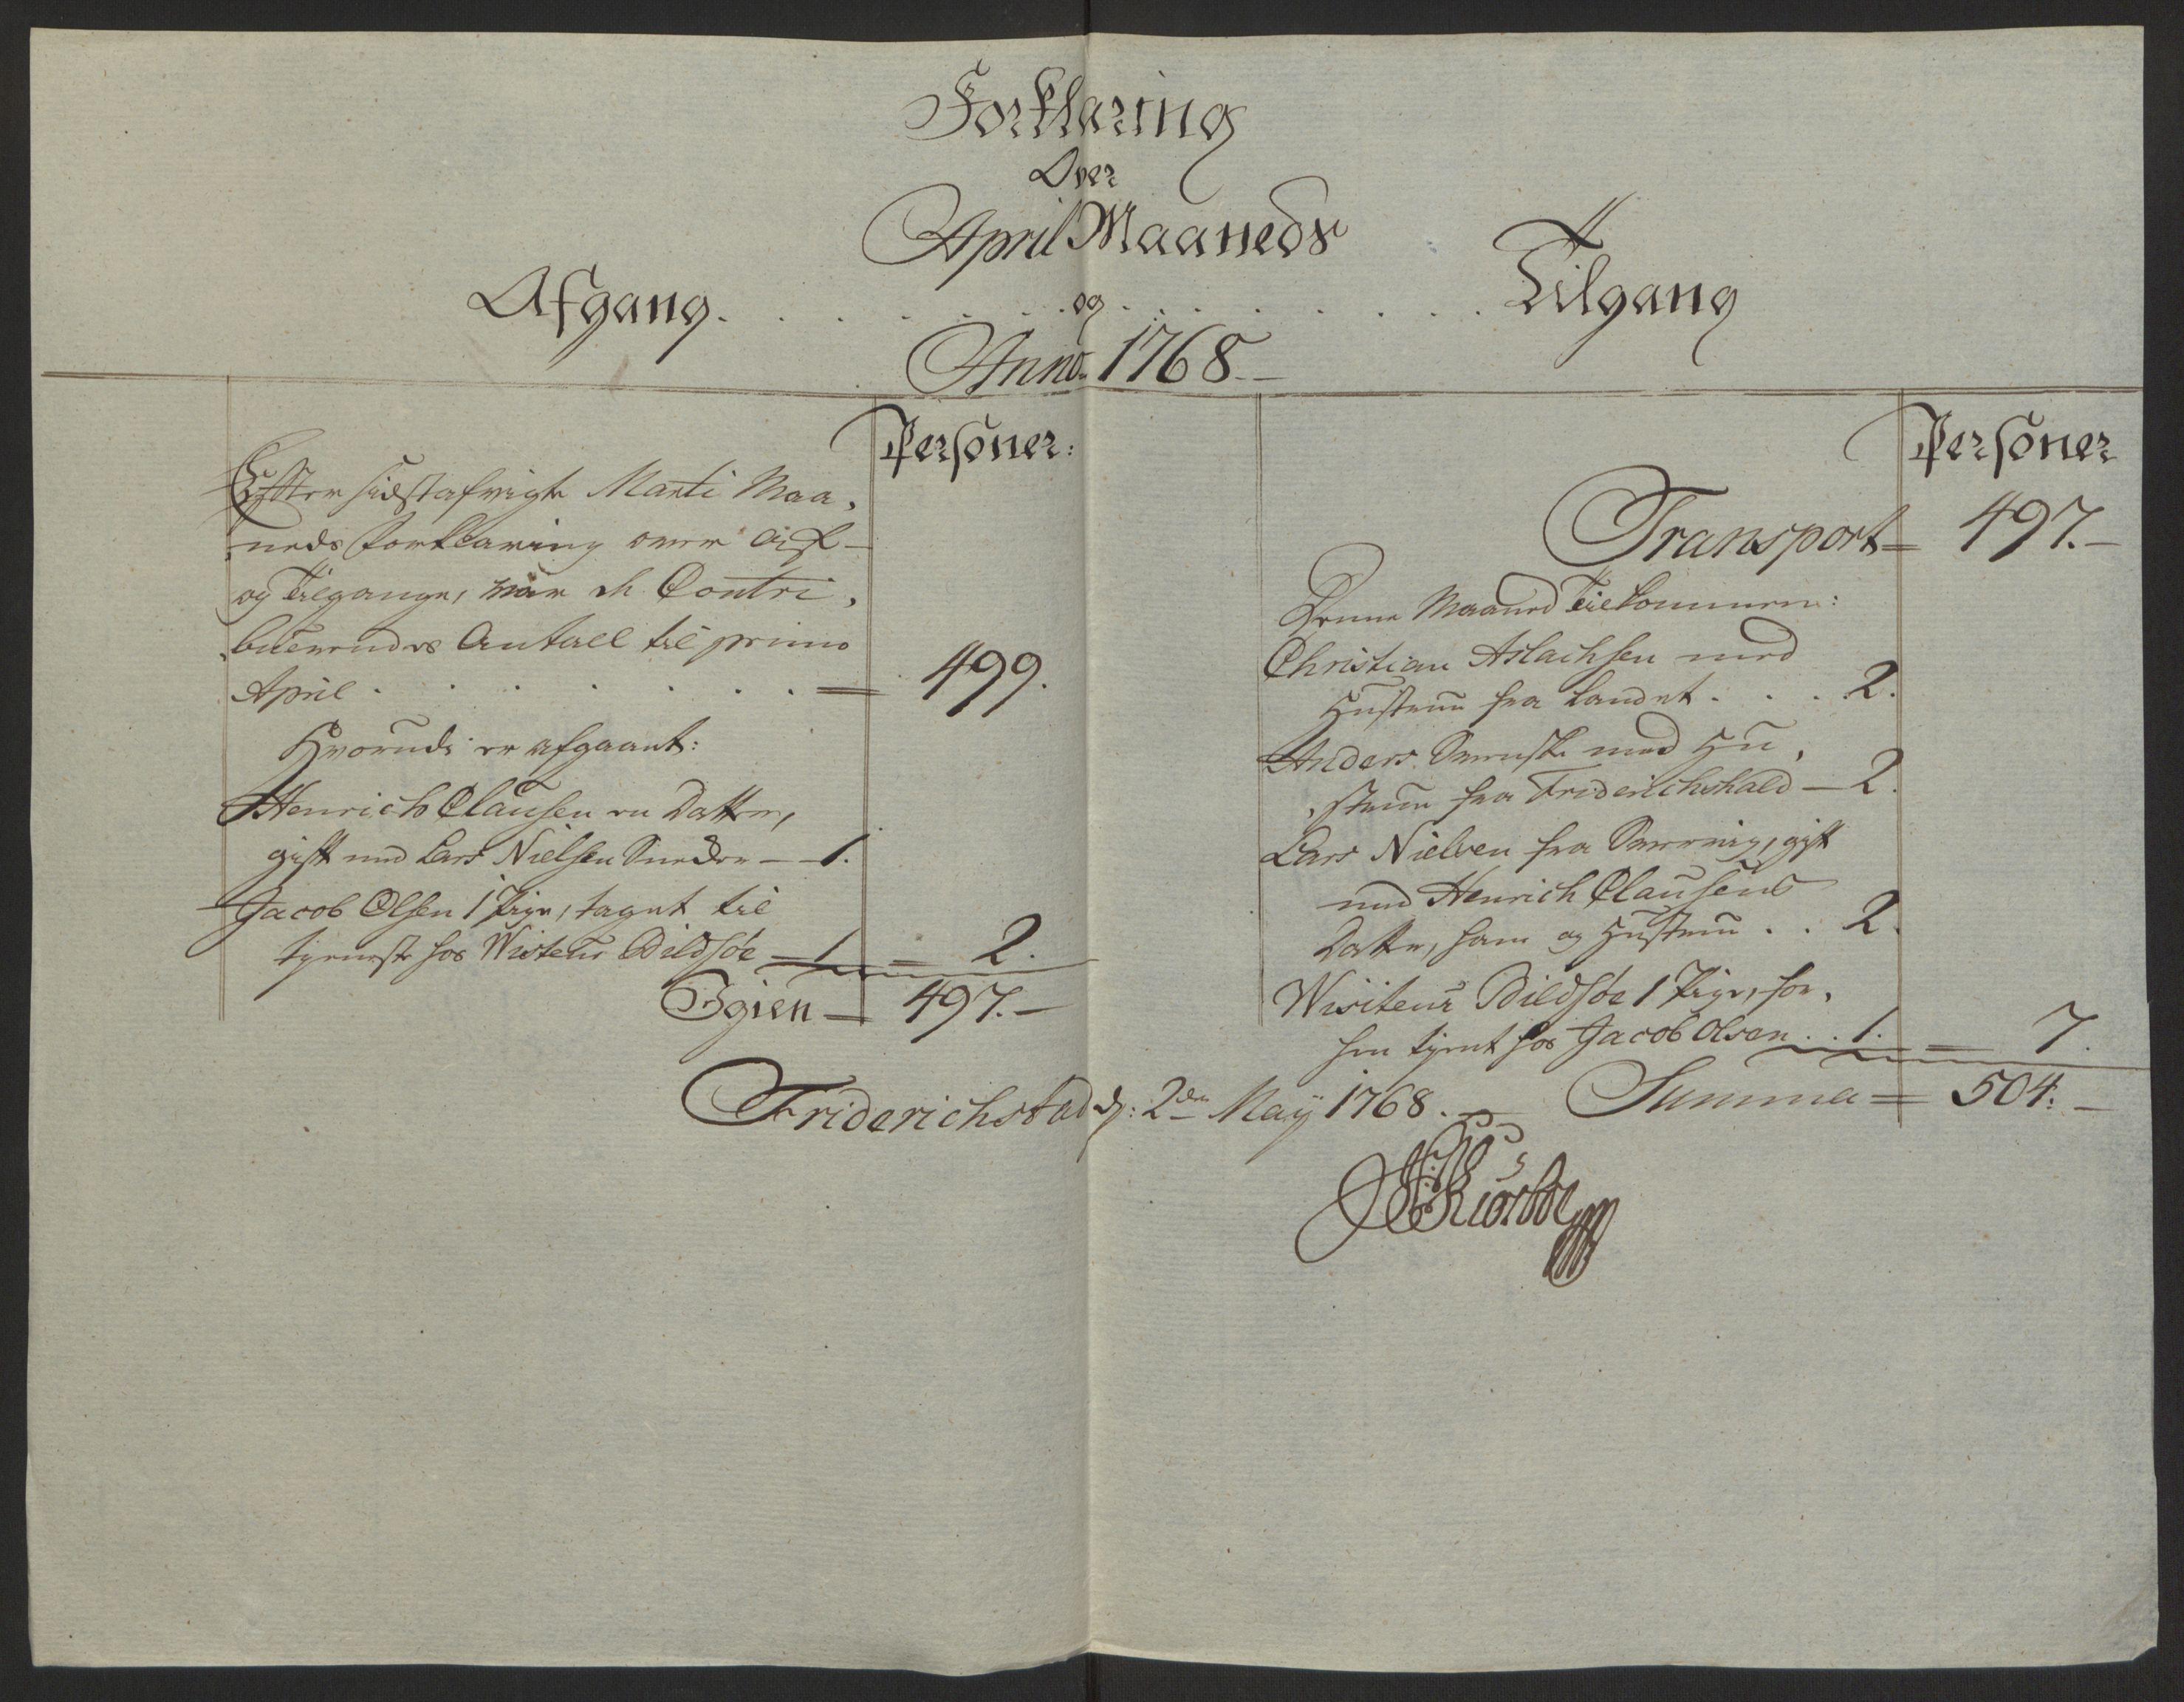 Forklaring
Over
April Maaneds
Afgang . . . . . . og . . . . . . . Tilgang
Anno 1768
Personer:
Effter sidst afvigte Marti Maa„
„neds Forklaring over Af-
og Tilgange, var de Contri„
„buerendes Antall til primo
April . . . . . . . = 499.
Hvorudi er afgaaet:
Henrich Clausen en Datter,
gift med Lars Nielsen Sneder — 1.
Jacob Olsen 1 Pige, taget til
tieneste hos Visiteur Bildsøe — 1 = 2.
Igien — 497.—
Personer
Transport = 497.—
Denne Maaned Tilkommen:
Christian Aslachsen med
Hustrue fra Landet . . . 2.
Anders Svenske med Hu„
„strue fra Friderichshald — 2.
Lars Nielsen fra Sverrig, gift
med Henrich Clausens
Datter, ham og Hustrue . . 2.
Visiteur Bildsøe 1 Pige, for„
hen tient hos Jacob Olsen . . 1. = 7.
Summa = 504:—
Friderichstad d: 2den Maÿ 1768.